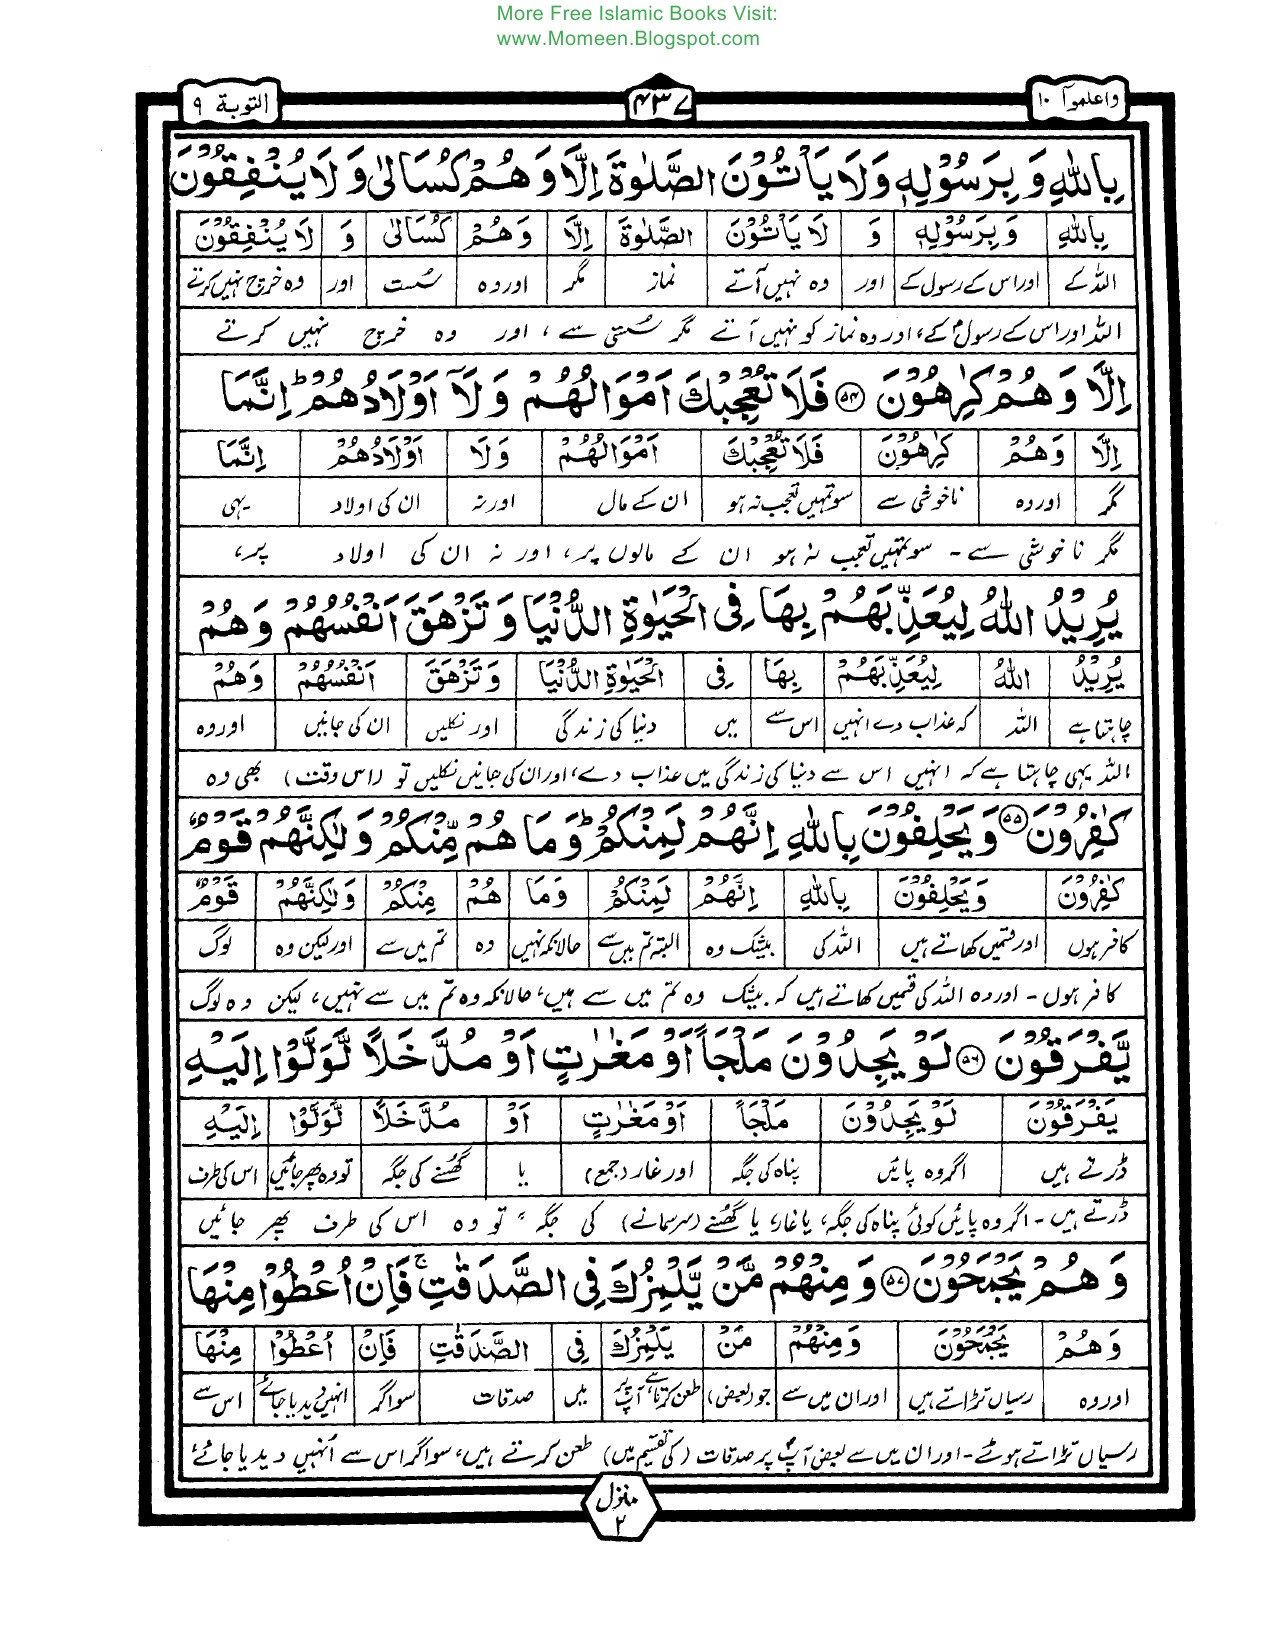 More Free Islamic Books Visit:
www.Momeen.Blogspot.com
واعلموٓا ١٠ ۴۳۷ التوبة ٩
بِاللّٰهِ وَ بِرَسُوْلِهٖ وَلَا يَاْتُوْنَ الصَّلٰوةَ اِلَّا وَ هُمْ كُسَالٰى وَ لَا يُنْفِقُوْنَ
بِاللّٰهِ وَ بِرَسُوْلِهٖ وَ لَا يَاْتُوْنَ الصَّلٰوةَ اِلَّا وَ هُمْ كُسَالٰى وَ لَا يُنْفِقُوْنَ
اللہ کے اور اس کے رسول کے اور وہ نہیں آتے نماز مگر اور وہ سُست اور وہ خرچ نہیں کرتے
اللہ اور اس کے رسولؐ کے، اور وہ نماز کو نہیں آتے مگر سُستی سے، اور وہ خرچ نہیں کرتے
اِلَّا وَ هُمْ كٰرِهُوْنَ ۵۴ فَلَا تُعْجِبْكَ اَمْوَالُهُمْ وَ لَاۤ اَوْلَادُهُمْ ؕ اِنَّمَا
اِلَّا وَ هُمْ كٰرِهُوْنَ فَلَا تُعْجِبْكَ اَمْوَالُهُمْ وَ لَا اَوْلَادُهُمْ اِنَّمَا
مگر اور وہ ناخوشی سے سو تمہیں تعجب نہ ہو ان کے مال اور نہ ان کی اولاد یہی
مگر ناخوشی سے۔ سو تمہیں تعجب نہ ہو ان کے مالوں پر، اور نہ ان کی اولاد پر،
يُرِيْدُ اللّٰهُ لِيُعَذِّبَهُمْ بِهَا فِى الْحَيٰوةِ الدُّنْيَا وَ تَزْهَقَ اَنْفُسُهُمْ وَ هُمْ
يُرِيْدُ اللّٰهُ لِيُعَذِّبَهُمْ بِهَا فِى الْحَيٰوةِ الدُّنْيَا وَ تَزْهَقَ اَنْفُسُهُمْ وَ هُمْ
چاہتا ہے اللہ کہ عذاب دے انہیں اس سے میں دنیا کی زندگی اور نکلیں ان کی جانیں اور وہ
اللہ یہی چاہتا ہے کہ انہیں اس سے دنیا کی زندگی میں عذاب دے، اور ان کی جانیں نکلیں تو (اس وقت) بھی وہ
كٰفِرُوْنَ ۵۵ وَ يَحْلِفُوْنَ بِاللّٰهِ اِنَّهُمْ لَمِنْكُمْ ؕ وَ مَا هُمْ مِّنْكُمْ وَ لٰكِنَّهُمْ قَوْمٌ
كٰفِرُوْنَ وَ يَحْلِفُوْنَ بِاللّٰهِ اِنَّهُمْ لَمِنْكُمْ وَ مَا هُمْ مِنْكُمْ وَ لٰكِنَّهُمْ قَوْمٌ
کافر ہوں اور قسمیں کھاتے ہیں اللہ کی بیشک وہ البتہ تم میں سے حالانکہ نہیں وہ تم میں سے اور لیکن وہ لوگ
کافر ہوں۔ اور وہ اللہ کی قسمیں کھاتے ہیں کہ بیشک وہ تم میں سے ہیں، حالانکہ وہ تم میں سے نہیں، لیکن وہ لوگ
يَّفْرَقُوْنَ ۵۶ لَوْ يَجِدُوْنَ مَلْجَاً اَوْ مَغٰرٰتٍ اَوْ مُدَّخَلًا لَّوَلَّوْا اِلَيْهِ
يَفْرَقُوْنَ لَوْ يَجِدُوْنَ مَلْجَاً اَوْ مَغٰرٰتٍ اَوْ مُدَّخَلًا لَّوَلَّوْا اِلَيْهِ
ڈرتے ہیں اگر وہ پائیں پناہ کی جگہ اور غار (جمع) یا گھسنے کی جگہ تو وہ پھر جائیں اس کی طرف
ڈرتے ہیں۔ اگر وہ پائیں کوئی پناہ کی جگہ، یا غار، یا گھسنے (سر سمانے) کی جگہ، تو وہ اس کی طرف پھر جائیں
وَ هُمْ يَجْمَحُوْنَ ۵۷ وَ مِنْهُمْ مَّنْ يَّلْمِزُكَ فِى الصَّدَقٰتِ ۚ فَاِنْ اُعْطُوْا مِنْهَا
وَ هُمْ يَجْمَحُوْنَ وَ مِنْهُمْ مَنْ يَلْمِزُكَ فِى الصَّدَقٰتِ فَاِنْ اُعْطُوْا مِنْهَا
اور وہ رسیاں تڑاتے ہیں اور ان میں سے جو (بعض) طعن کرتا ہے آپ پر میں صدقات سو اگر انہیں دیدیا جائے اس سے
رسیاں تڑاتے ہوئے۔ اور ان میں سے بعض آپؐ پر صدقات (کی تقسیم میں) طعن کرتے ہیں، سو اگر اس سے اُنہیں دیدیا جائے
منزل
۲